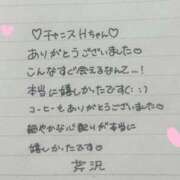 ♡チャニスHちゃん♡
ありがとうございました♡
こんなすぐ会えるなんて…!
本当に嬉しかったです(: ;)
コーヒーもありがとうございました♡
細やかな心配りが本当に
嬉しかったです♡
芹沢